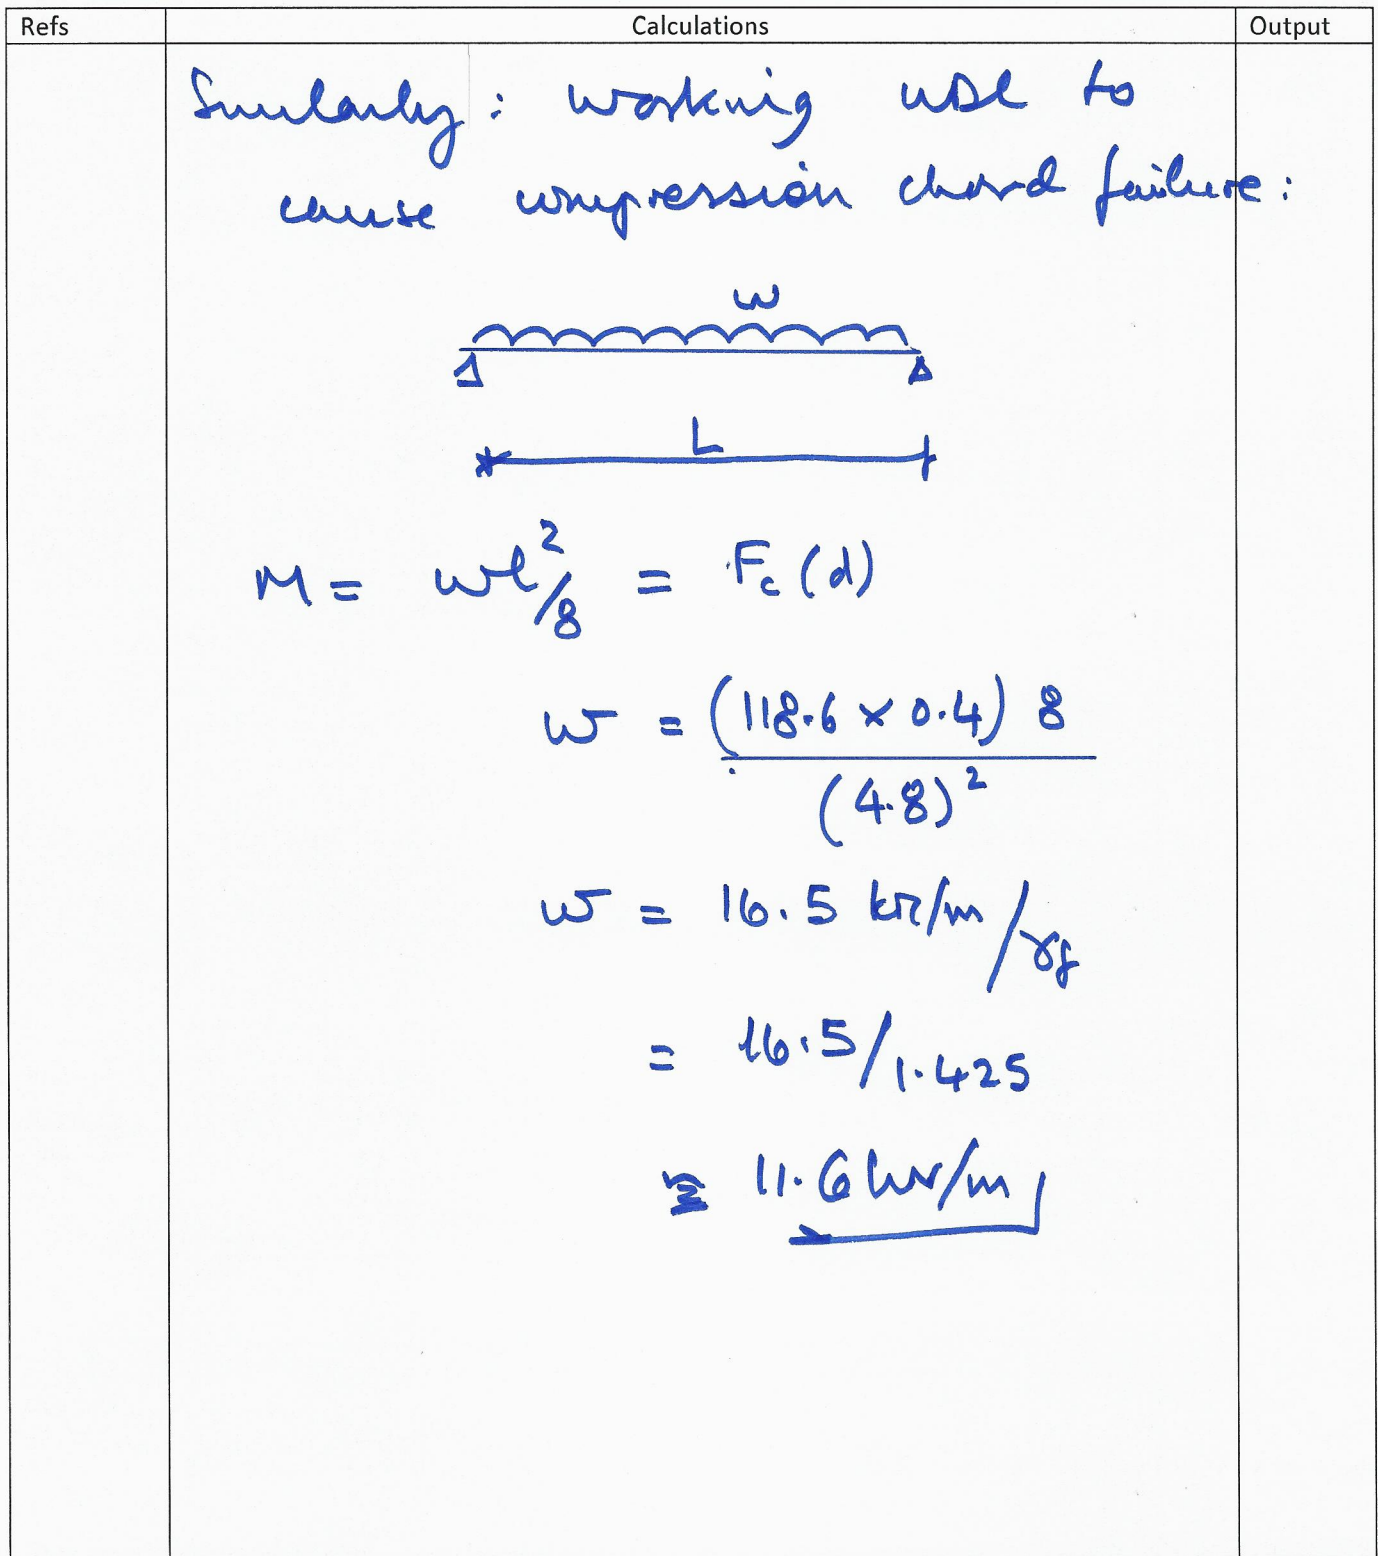 Refs Calculations Output
Similarly: working UDL to
cause compression chord failure:
w
L
M = wl²/8 = Fc (d)
w = (118.6 x 0.4) 8
(4.8)²
w = 16.5 kN/m/γf
= 16.5/1.425
≅ 11.6 kN/m